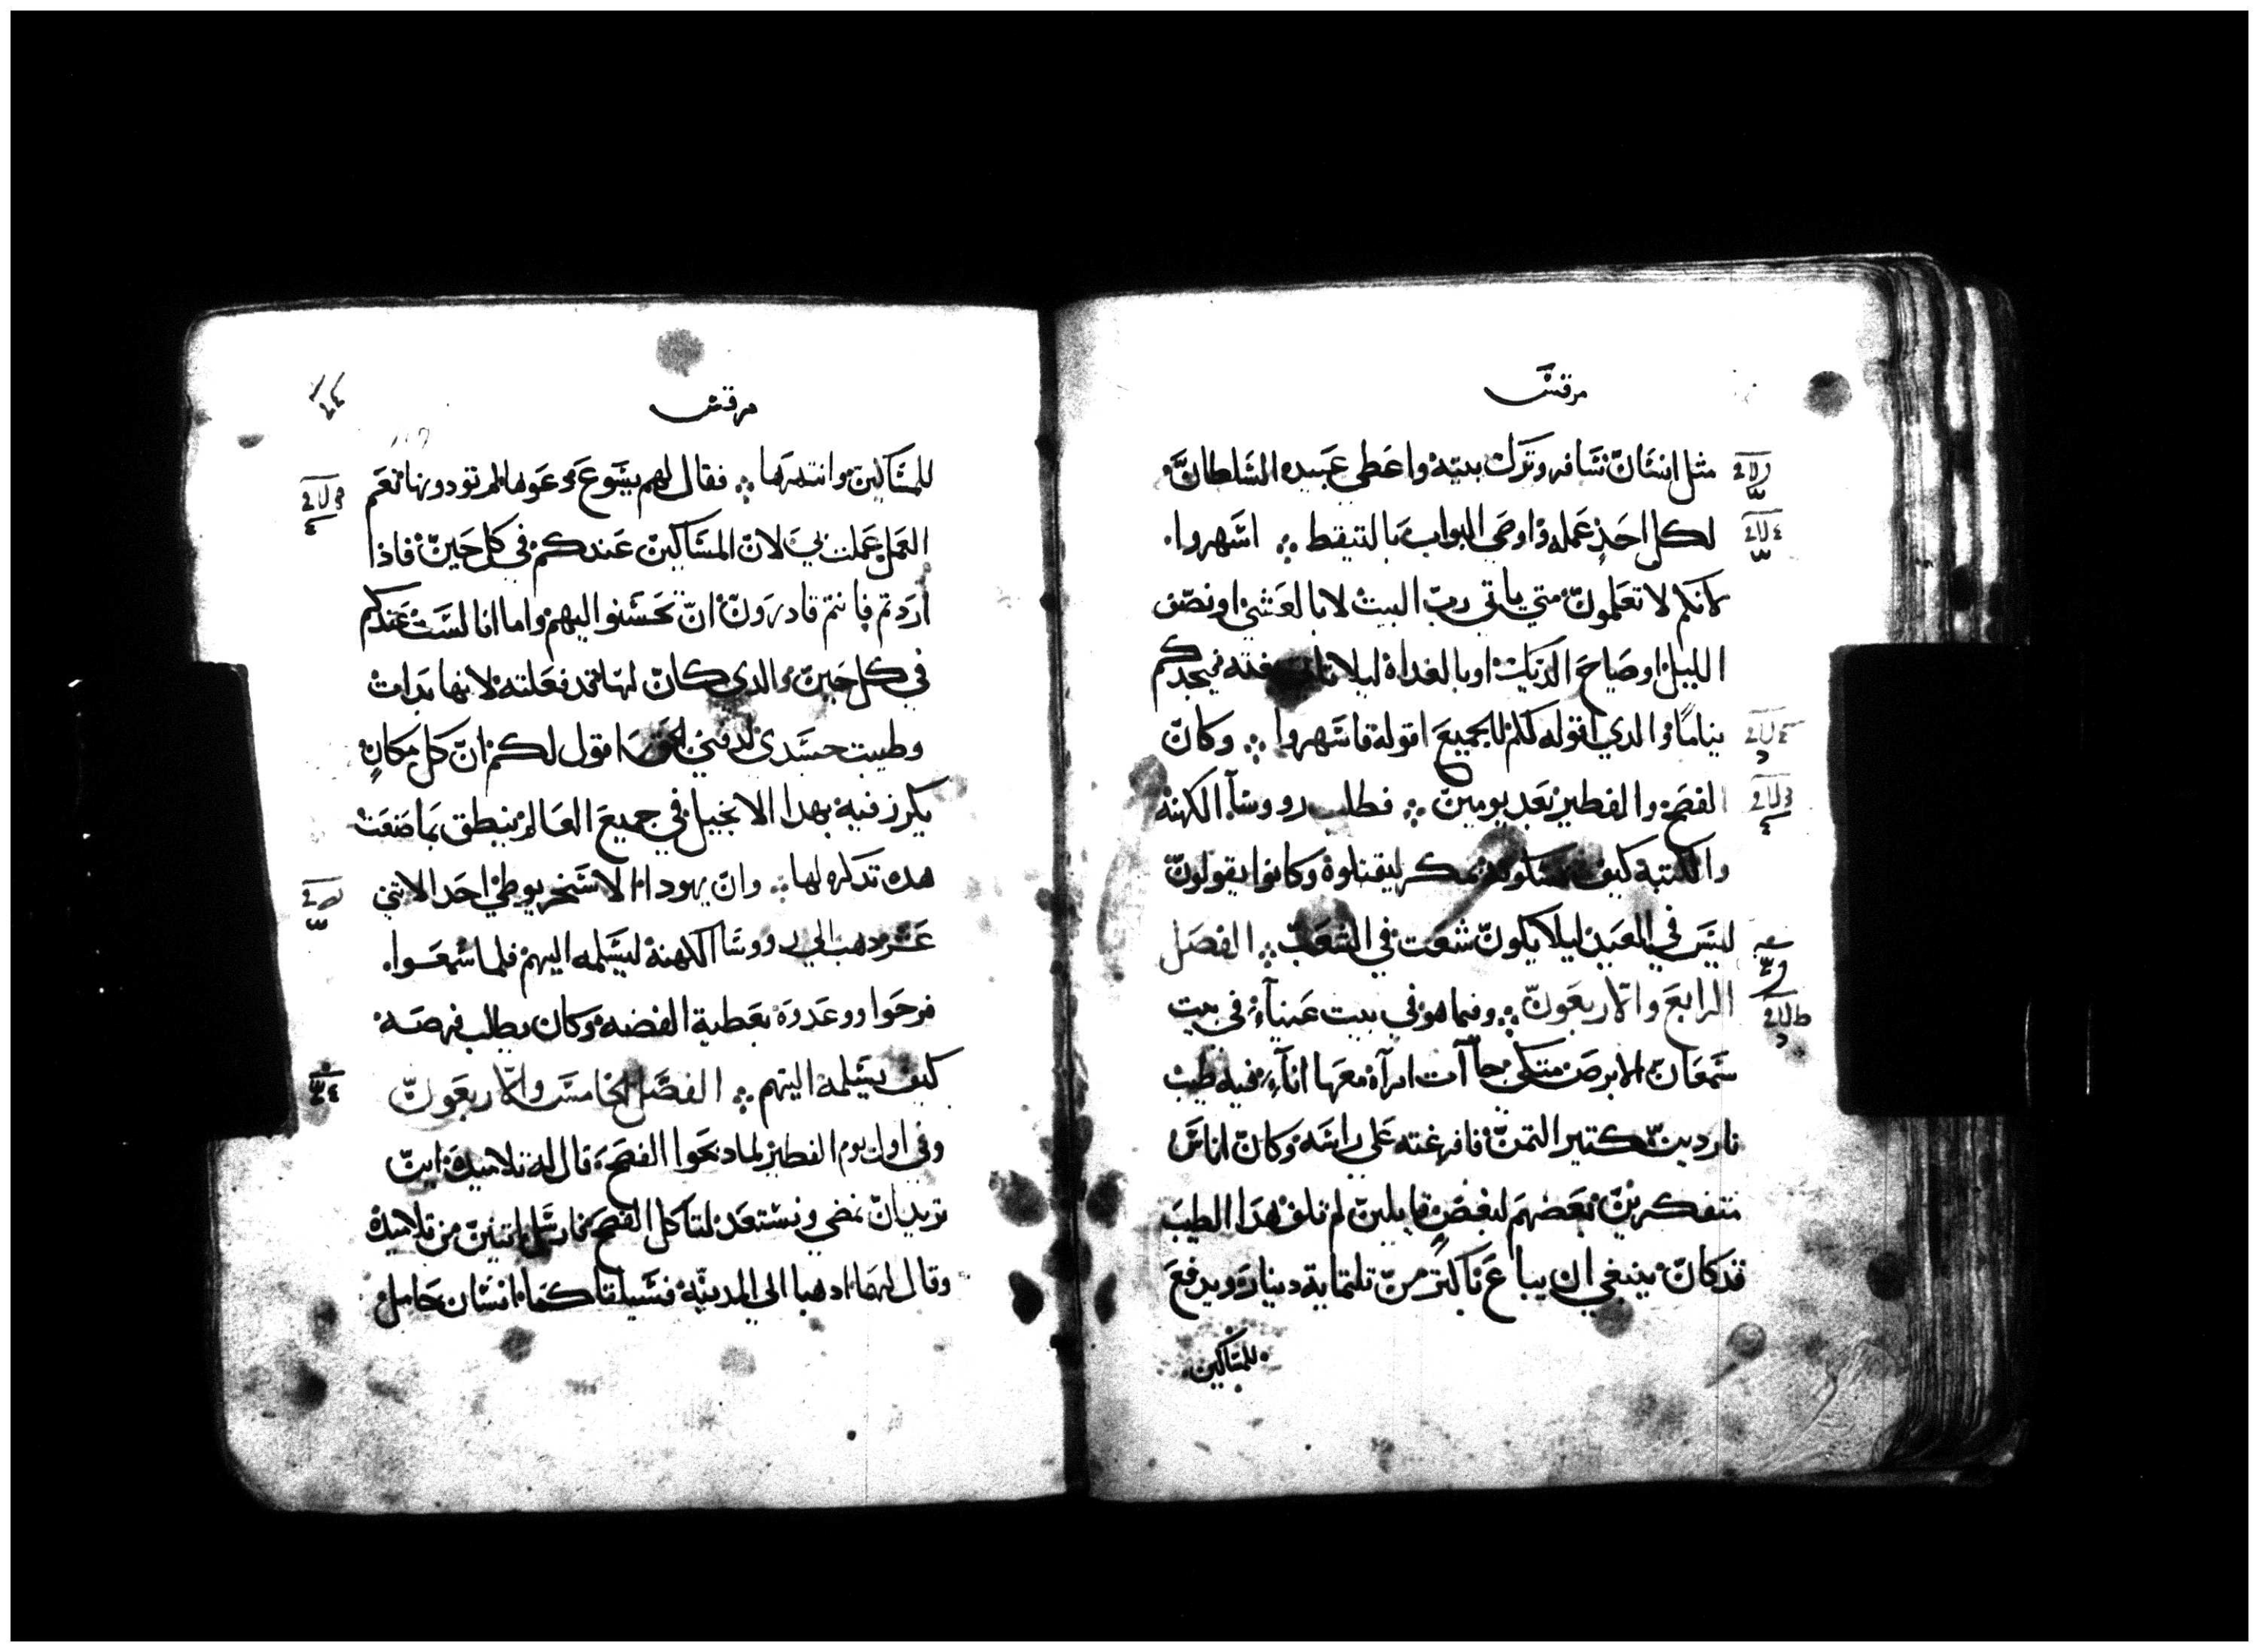 مرقس
مثل انسان سافر وترك بيته واعطي عبيده السلطان
لكل احد عمله واوصي البواب بالتيقظ ⁘ اسهروا
لانكم لا تعلمون متي ياتي رب البيت لا بالعشي او نصف
الليل او صياح الديك او بالغداة ليلا ياتي بغته فيجدكم
نياما والدي اقوله لكم للجميع اقوله فاسهروا ⁘ وكان
الفصح والفطير بعد يومين ⁘ فطلب رووسآ الكهنة
والكتبة كيف يمسكونه بمكر ليقتلوة وكانوا يقولون
ليس في العيد ليلا يكون شعت في الشعب ⁘ الفصل
الرابع والاربعون ⁘ وفيما هو في بيت عنيآ في بيت
سمعان الابرص متكي جآات امراة معها انآء فيه طيب
ناردين كتير التمن فافرغته علي راسه وكان اناس
متفكرين بعضهم لبعض قايلين لم تلف هدا الطيب
قد كان ينبغي ان يباع باكتر من تلتماية دينار ويدفع
للمساكين
مرقس
للمساكين وانتهرها ⁘ فقال لهم يسوع دعوها لم تودونها نعم
العمل عملت بي لان المساكين عندكم في كل حين فادا
اردتم فانتم قادرون ان تحسنوا اليهم واما انا لست عندكم
في كل حين والدي كان لها قد فعلته لانها بدات
وطيبت جسدي لدفني الحق اقول لكم ان كل مكان
يكرز فيه بهدا الانجيل في جميع العالم ينطق بما صنعت
هده تدكره لها ⁘ وان يهودا الاسخريوطي احد الاتني
عشر دهب الي رووسا الكهنة ليسلمه اليهم فلما سمعوا
فرحوا ووعدوة بعطية الفضه وكان يطلب فرصه
كيف يسلمه اليهم ⁘ الفصل الخامس والاربعون
وفي اول يوم الفطير لما دبحوا الفصح قال له تلاميده اين
تريد ان نمضي ونستعد لتاكل الفصح فارسل اتنين من تلاميده
وقال لهما ادهبا الي المدينه فسيلقاكما انسان حامل